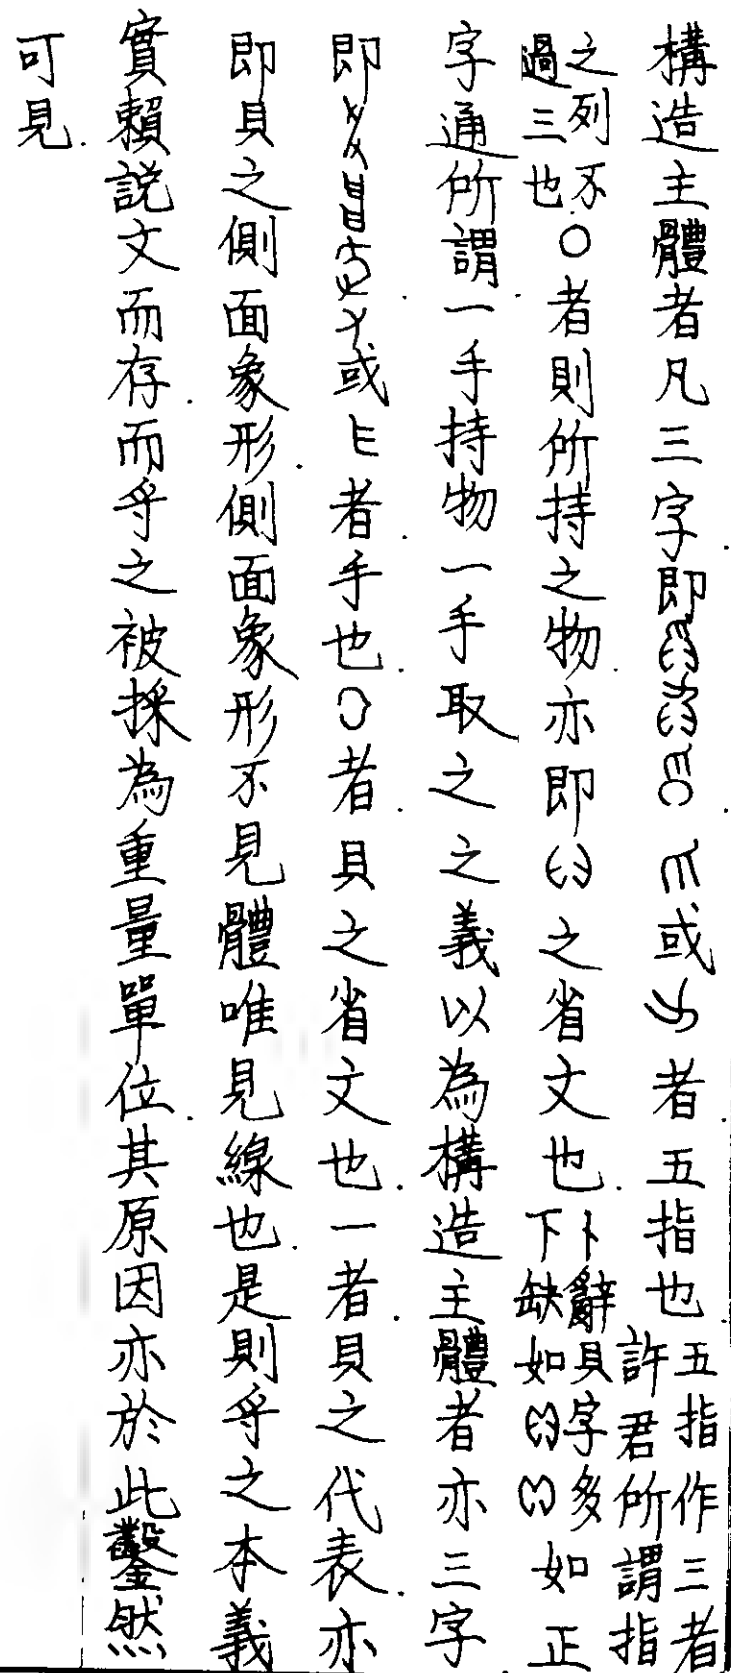 構造主體者凡三字.即或者.五指也.五指作三者許君所謂指
之列不過三也.○者則所持之物.亦即之省文也.卜辭貝字多下缺如如正
字通所謂一手持物一手取之之義以為構造主體者亦三字
即.或者.手也.者.貝之省文也.一者.貝之代表.亦
即貝之側面象形.側面象形不見體唯見線也.是則寽之本義
實賴説文而存.而寽之被採為重量單位.其原因亦於此鑿然
可見.